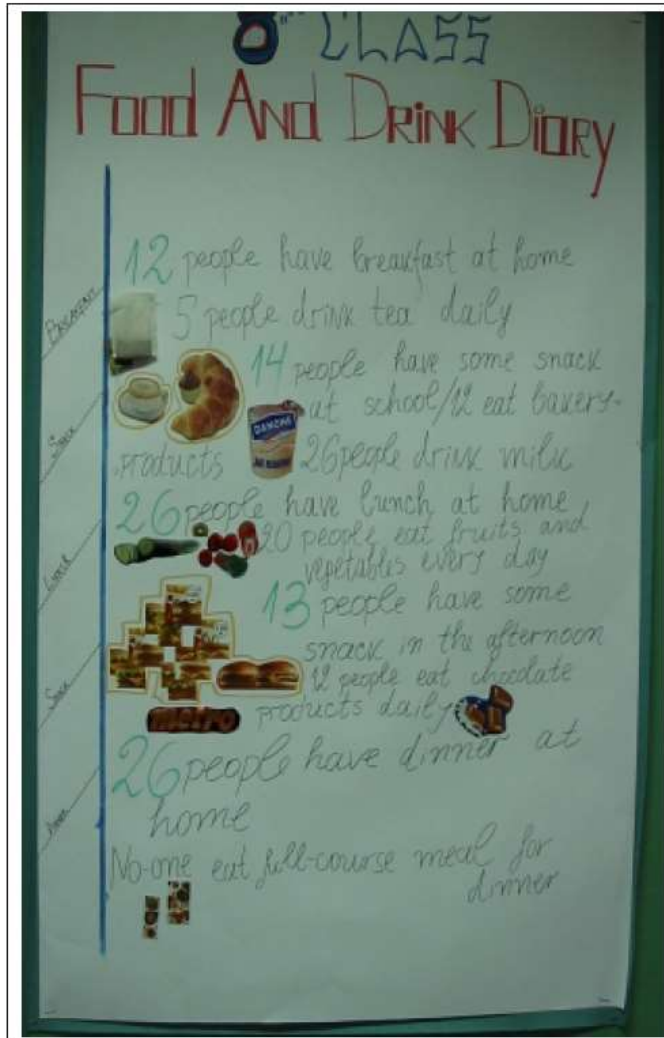 8th CLASS
FOOD AND DRINK DIARY
12 people have breakfast at home
BREAKFAST
5 people drink tea daily
14 people have some snack
at school/12 eat bakery-
Snack
DANONE
products 26 people drink milk
26 people have lunch at home
20 people eat fruits and
vegetables every day
Lunch
13 people have some
snack in the afternoon
Snack
12 people eat chocolate
products daily
metro
26 people have dinner at
home
Dinner
No-one eat full-course meal for
dinner